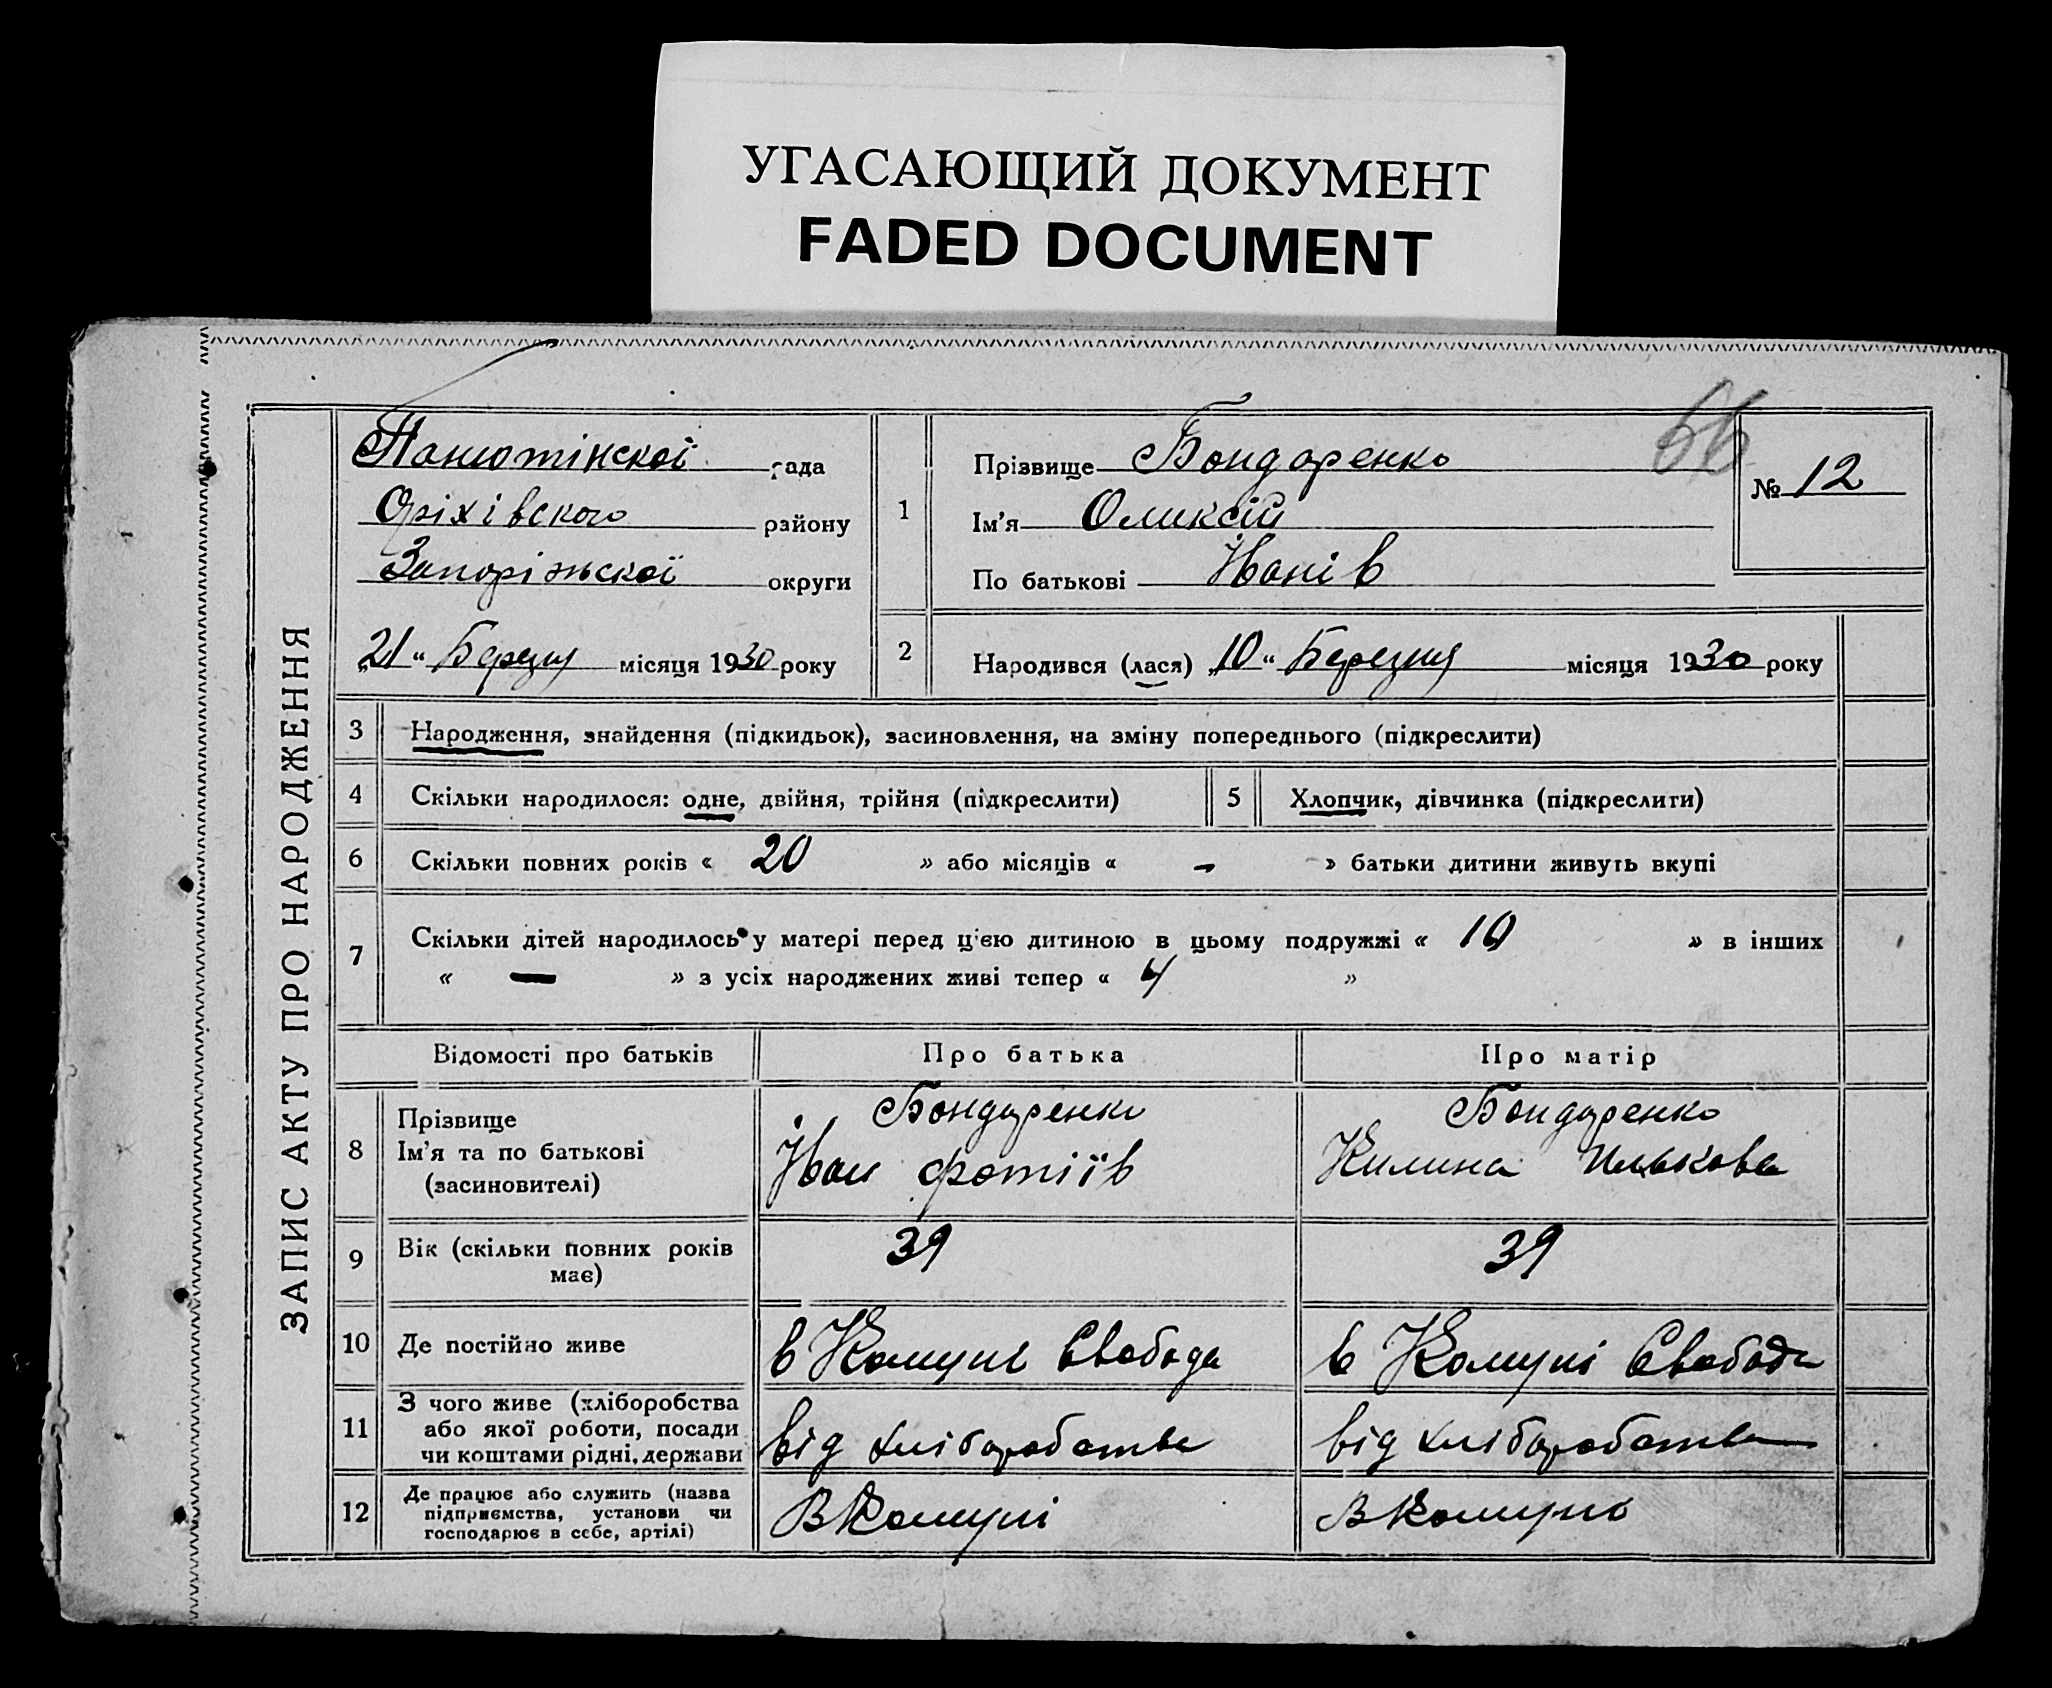 УГАСАЮЩИЙ ДОКУМЕНТ
FADED DOCUMENT
66
ЗАПИС АКТУ ПРО НАРОДЖЕННЯ
Панютінскої рада
Оріхівского району
Запоріжскої округи
„21“ Березня місяця 1930 року
1
Прізвище Бондаренко
Ім'я Оликсій
По батькові Іванів
№ 12
2 Народився (лася) „10“ Березня місяця 1930 року
3 Народження, знайдення (підкидьок), засиновлення, на зміну попереднього (підкреслити)
4 Скільки народилося: одне, двійня, трійня (підкреслити) 5 Хлопчик, дівчинка (підкреслити)
6 Скільки повних років « 20 » або місяців « - » батьки дитини живуть вкупі
7 Скільки дітей народилось у матері перед ц'єю дитиною в цьому подружжі « 10 » в інших
« — » з усіх народжених живі тепер « 4 »
Відомості про батьків Про батька Про матір
8 Прізвище Бондаренко Бондаренко
Ім'я та по батькові Іван Фотіїв Килина
(засиновителі)
9 Вік (скільки повних років має) 39 39
10 Де постійно живе в Комуні Свобода в Комуні Свобода
11 З чого живе (хліборобства
або якої роботи, посади
чи коштами рідні, держави
від хліборобства від хліборобства
12 Де працює або служить (назва
підприємства, установи чи
господарює в себе, артілі)
В Комуні В Комуні